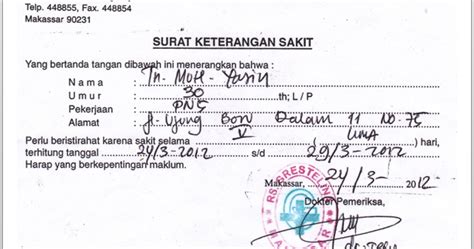 Telp. 448855, Fax. 448854
Makassar 90231
SURAT KETERANGAN SAKIT
Yang bertanda tangan dibawah ini menerangkan bahwa :
Nama : Tn. Moh. Yasin
Umur : 30 th; L / P
Pekerjaan : PNS
Alamat : Jl. Ujung Bori Dalam 11 NO. 75
Perlu beristirahat karena sakit selama V ( LIMA ) hari,
terhitung tanggal 24/3-2012 s/d 29/3-2012
Harap yang berkepentingan maklum.
Makassar, 24/3- 2012
Dokter Pemeriksa,